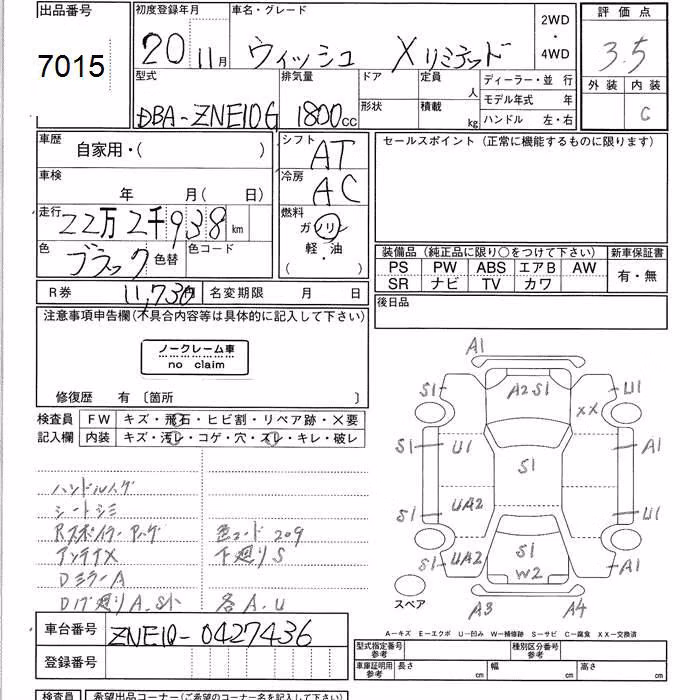 出品番号 初度登録年月 車名・グレード 2WD・4WD 評価点
7015 20 11月 ウィッシュ Xリミテッド 3.5
型式 排気量 ドア 定員 人 ディーラー・並行 外装 内装
DBA-ZNE10G 1800cc 形状 積載 kg モデル年式 年 C
ハンドル 左・右
車歴 自家用・( ) シフト AT セールスポイント(正常に機能するものに限ります)
車検 年 月( 日) 冷房 AC
走行 22万2千938km 燃料 ガソリン・軽・油( )
色 ブラック 色替 色コード
装備品(純正品に限り○をつけて下さい) 新車保証書
PS PW ABS エアB AW 有・無
SR ナビ TV カワ
R券 11,730 名変期限 月 日 後日品
注意事項申告欄(不具合内容等は具体的に記入して下さい)
ノークレーム車
no claim
修復歴 有〔箇所 〕
検査員 FW キズ・飛石・ヒビ割・リペア跡・×要
記入欄 内装 キズ・汚レ・コゲ・穴・スレ・キレ・破レ
ハンドルスレ
シートシミ
Rスポイラー
色コード 209
アンテナX 下廻りS
DミラーA
各A.U
A1
S1 A2S1 U1
XX
S1 U1 S1 A1
S1 UA2 U1
S1 UA2 S1 A1
W2
スペア A3 A4
A−キズ E−エクボ U−凹み W−補修跡 S−サビ C−腐食 XX−交換済
車台番号 ZNE10-0427436
型式指定番号 参考 種別区分番号 参考
登録番号 車庫証明用 参考 長さ cm 幅 cm 高さ cm
検査員 希望出品コーナー(ご希望のコーナー名を記入して下さい)